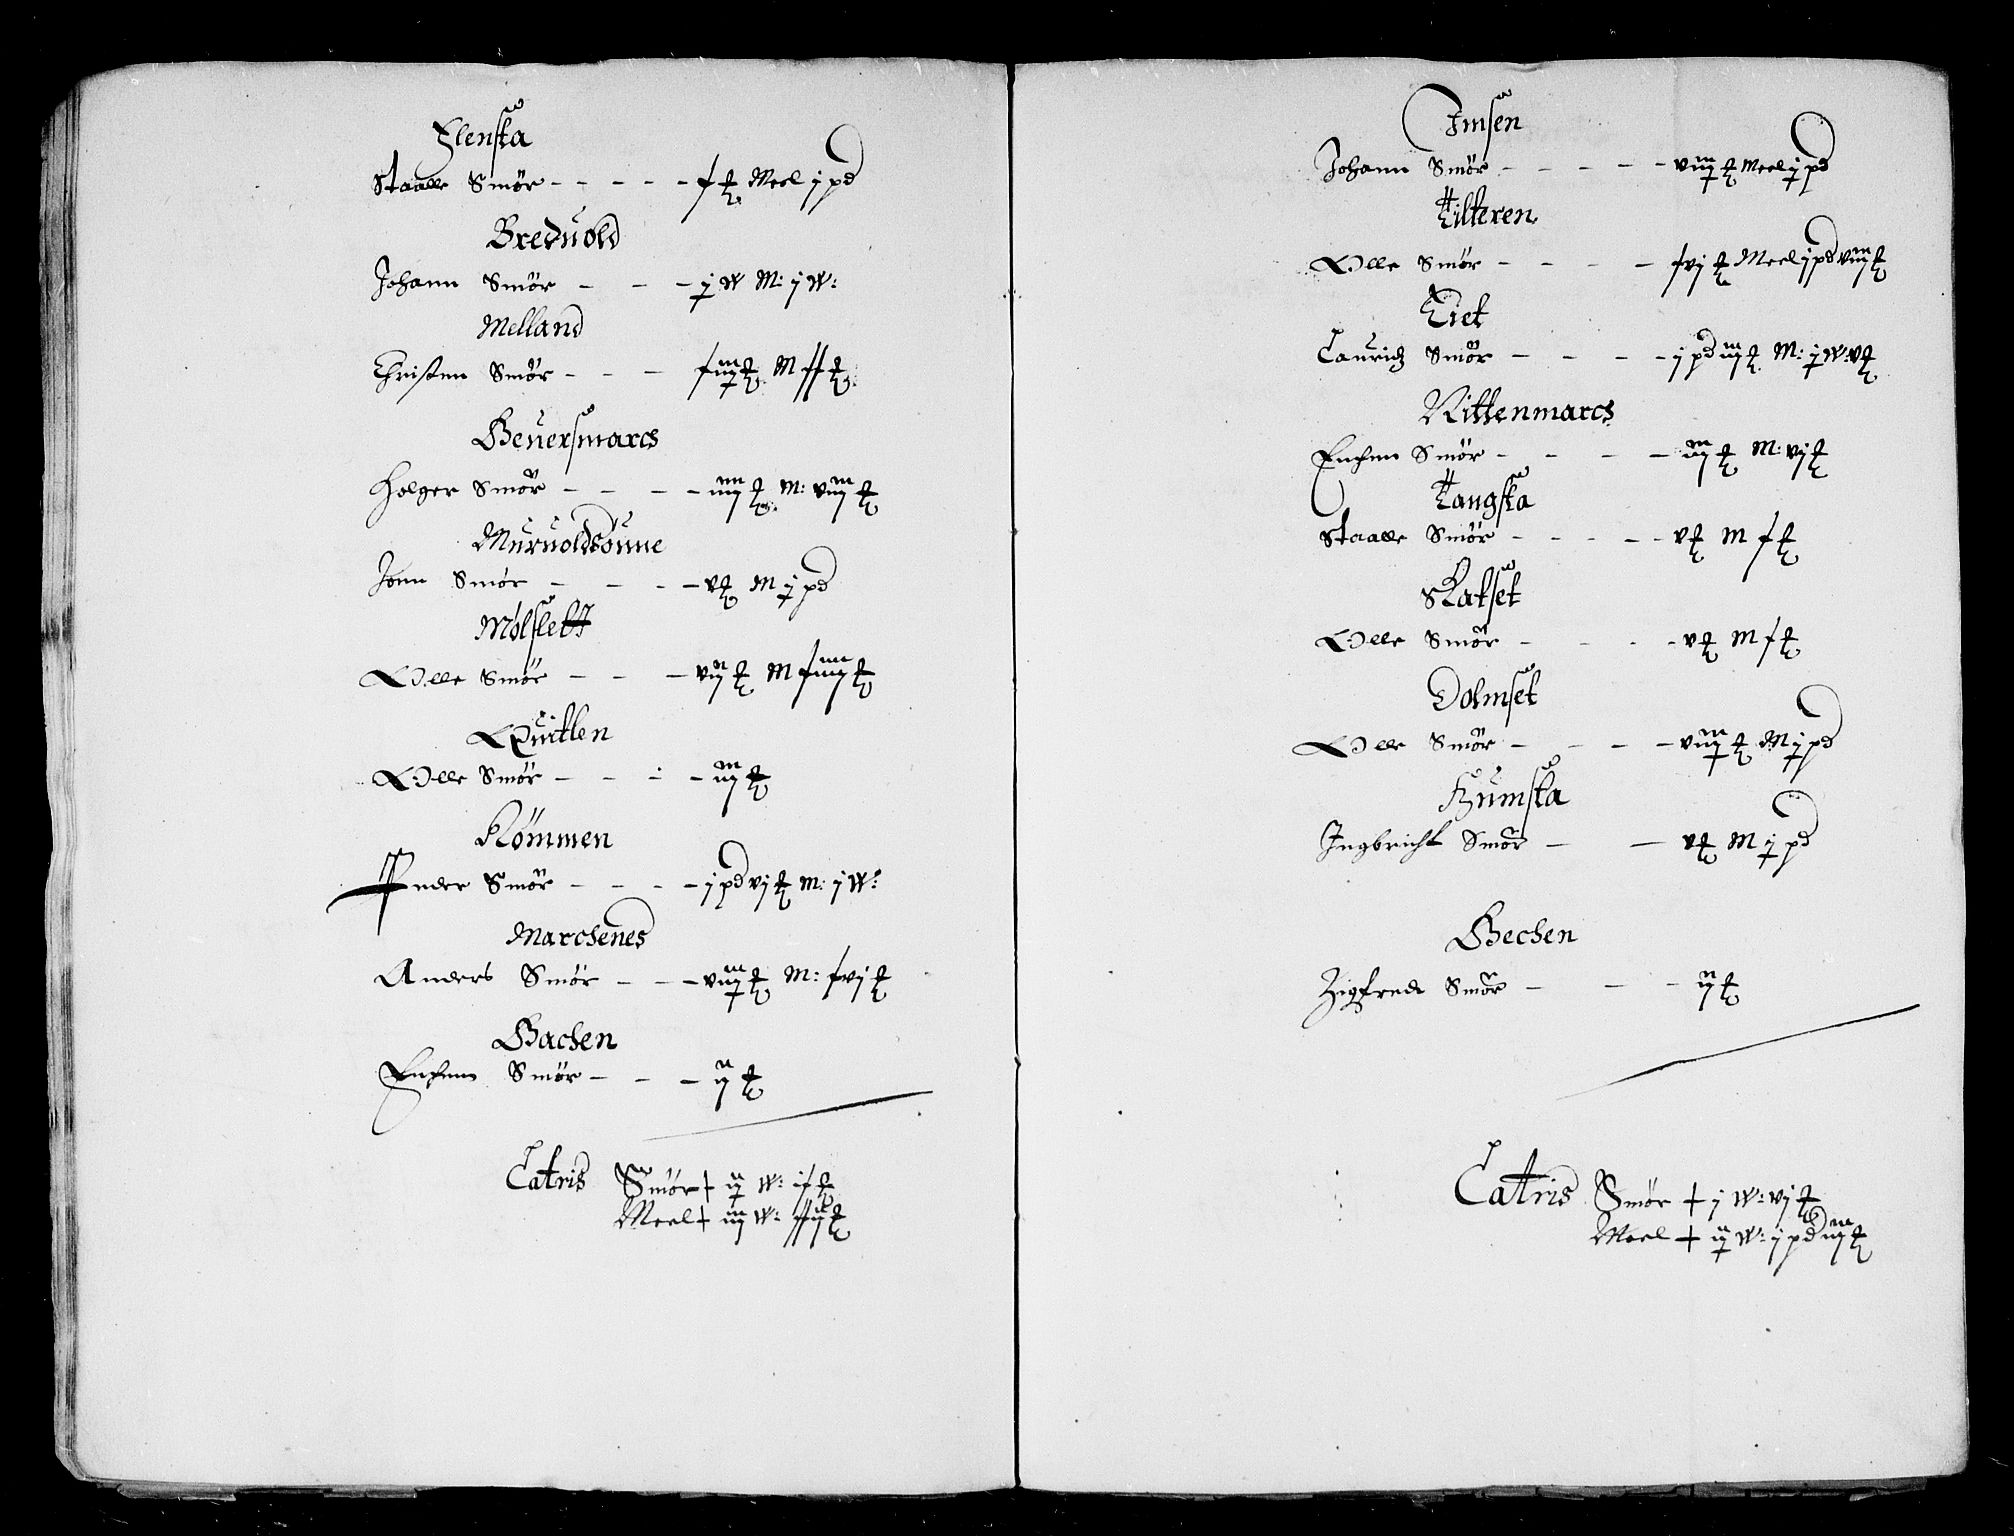 Elensta
Staalle Smör - - - - - f ℔ Meel j pd
Bredvold
Johann Smör - - - j w M: j w:
Melland
Christen Smör - - - fiiij ℔ M ff ℔
Beversmarcs
Holger Smör - - - - iiiij ℔ M: viiij ℔
Murvoldsoune
Jonn Smör - - - - v ℔ M j pd
Mølslett
Olle Smör - - - vij ℔ M fiiiij ℔
Quitlen
Olle Smör - - - - iiij ℔
Kömmen
Smör - - - - j pd vj ℔ M: j w:
Marchenes
Anders Smör - - - viiij ℔ M: fvj ℔
Bachen
Smör - - - ij ℔
Latris Smör + ij w: if ℔
Meel + iiij w: ffij ℔
Imsen
Johann Smör - - - - - viiij ℔ Meel j pd
Tilteren
Olle Smör - - - - fvj ℔ Meel j pd viiij ℔
Liet
Lauridz Smör - - - - j pd iiij ℔ M: j w: v ℔
Rittenmarcs
Smör - - - - iiij ℔ M: vj ℔
Tangsta
Staalle Smör - - - - - v ℔ M f ℔
Ratset
Olle Smör - - - - v ℔ M f ℔
Dolmset
Olle Smör - - - - viiij ℔ M j pd
Humsta
Ingbricht Smör - - v ℔ M j pd
Bechen
Zigfred Smör - - - ij ℔
Latris Smör + j w: vj ℔
Meel + ij w: j pd iiij ℔